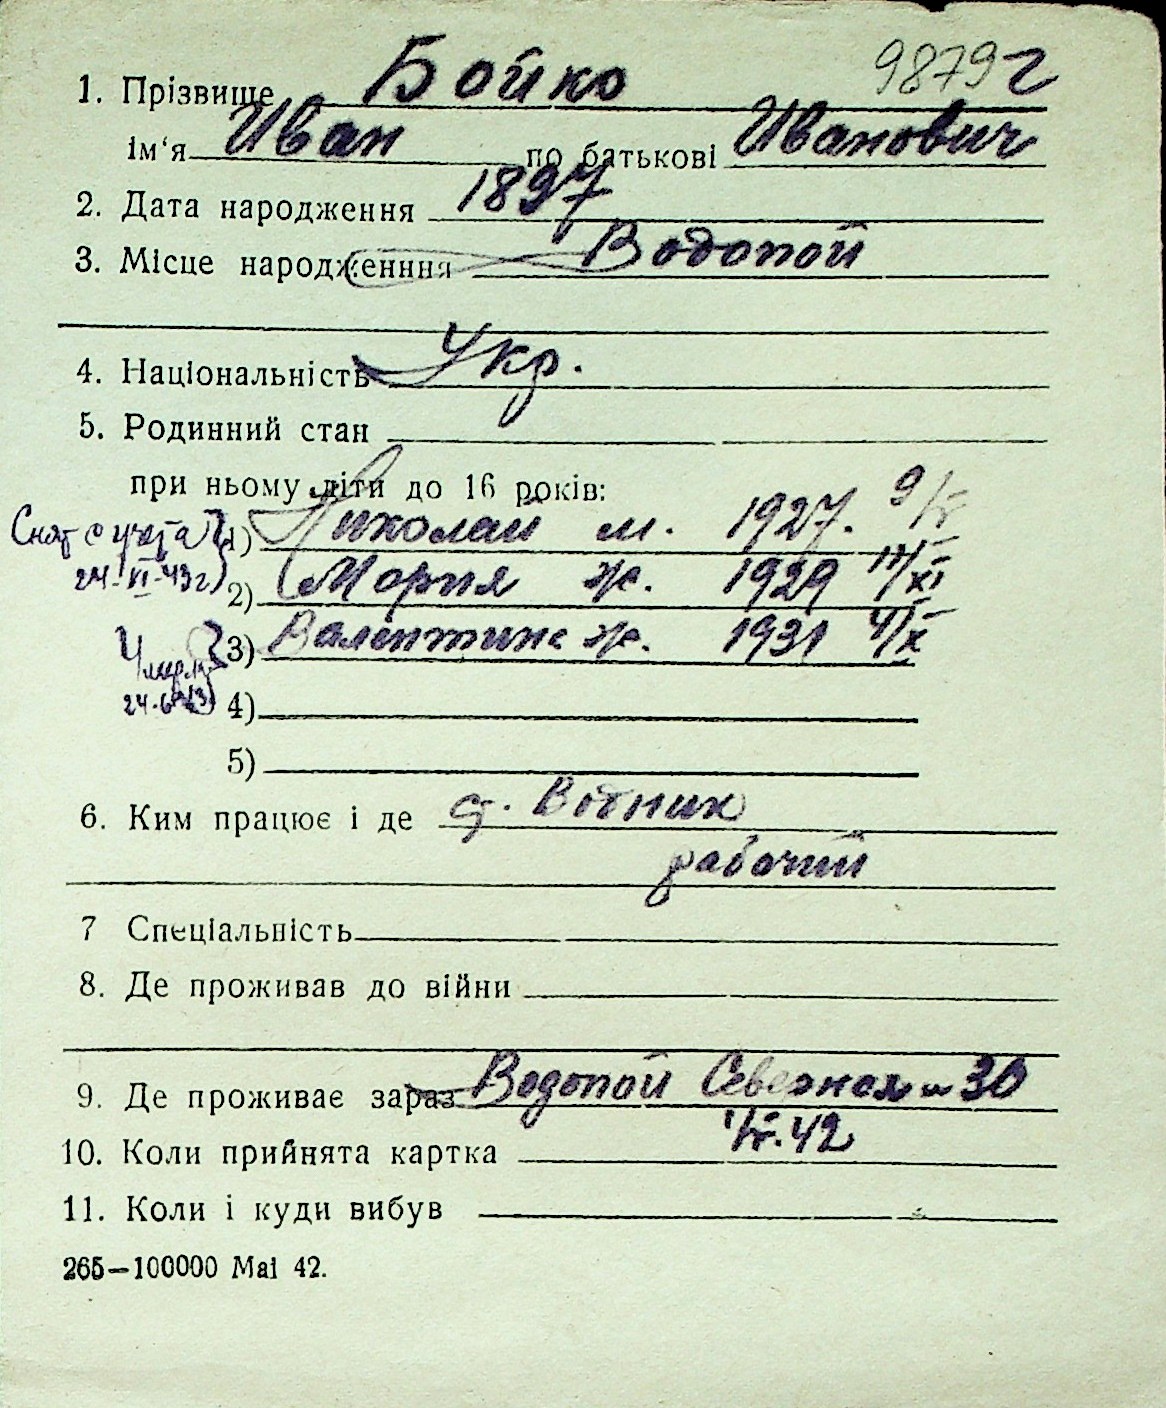 98792
1. Прізвище Бойко
ім‘я Иван по батькові Иванович
2. Дата народження 1897
3. Місце народженння Водопой
4. Національність Укр.
5. Родинний стан
при ньому діти до 16 років:
Снят с учета 1) Николай м. 1927. 9/V
24-VI-43г 2) Мария ж. 1929 17/XI
Умерла 3) Валентина ж. 1931 4/X
24.6.43 4)
5)
6. Ким працює і де
рабочий
7 Спеціальність
8. Де проживав до війни
9. Де проживає зараз Водопой Северная № 30
10. Коли прийнята картка
11. Коли і куди вибув
265—100000 Mai 42.